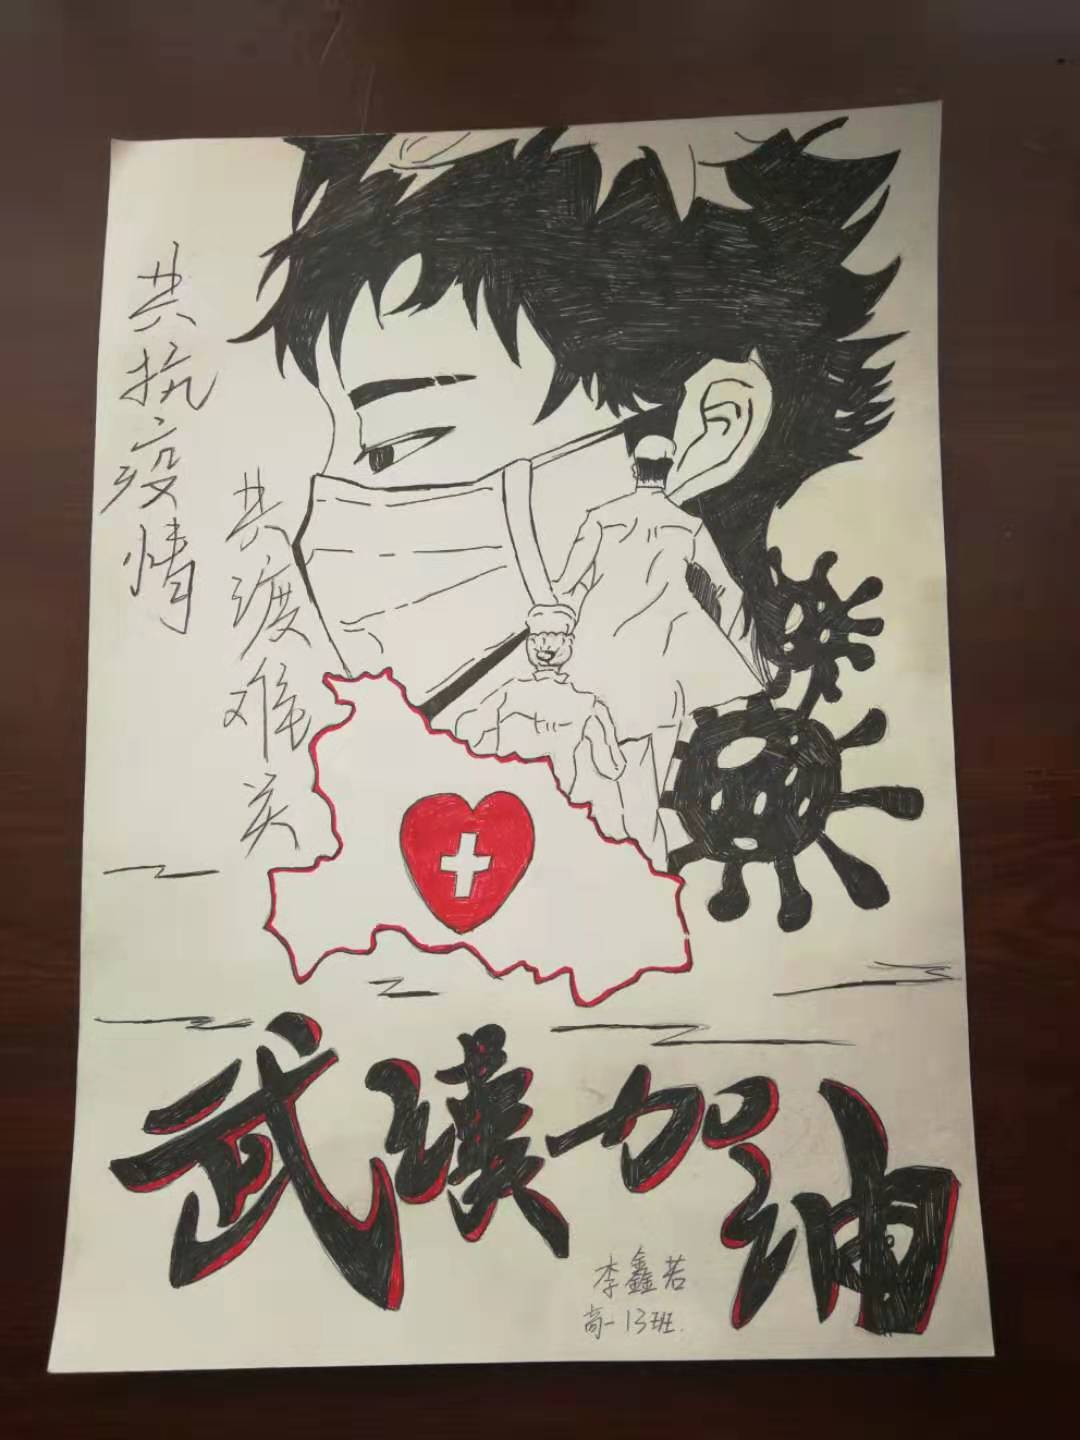 共抗疫情
共渡难关
武漢加油
李鑫若
高一13班.